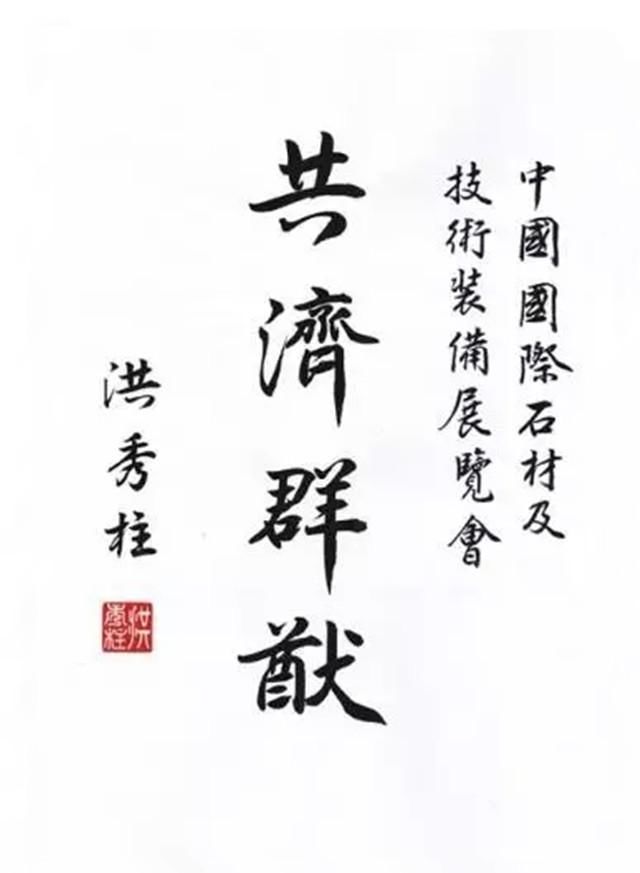 中國國際石材及
技術裝備展覽會
共濟群猷
洪秀柱
洪秀柱